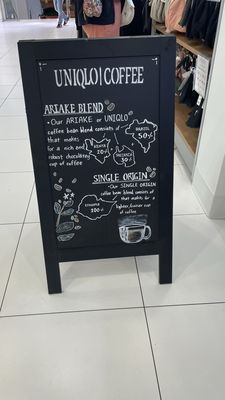 UNIQLO | COFFEE
ARIAKE BLEND
• Our ARIAKE or UNIQLO
coffee bean blend consists of
that makes
for a rich
and
robust chocolatey
cup of coffee
BRAZIL
50%
KENYA
20%
30%
SINGLE ORIGIN
• Our SINGLE ORIGIN
coffee bean blend consists of
that makes for a
lighter, fruitier
cup of coffee
ETHIOPIA
100%